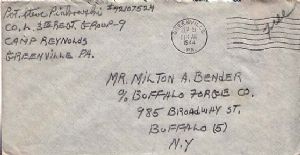 Pvt. Steve #42107524
Co. A 3rd Regt. Group-9
Camp Reynolds
Greenville Pa.
GREENVILLE
1944
PA.
Free
Mr. Milton A. Bender
% Buffalo Forge Co.
985 Broadway St.
Buffalo (5)
N.Y